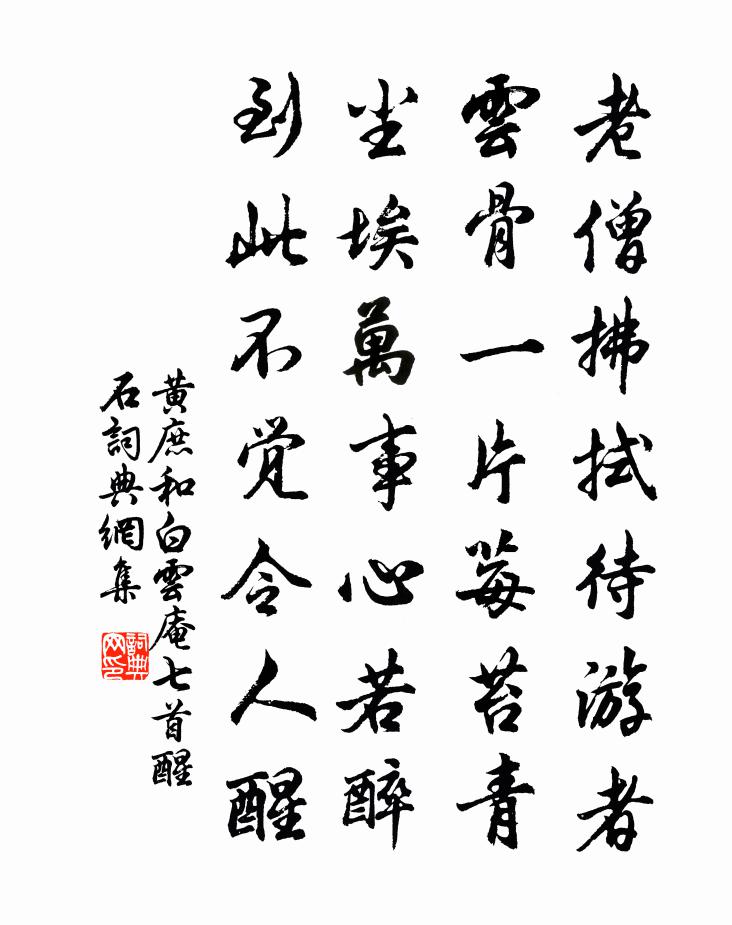 老僧拂拭待游者
雲骨一片莓苔青
尘埃萬事心若醉
到此不觉令人醒
黄庶和白雲庵七首醒
石詞典網集
詞典
网印